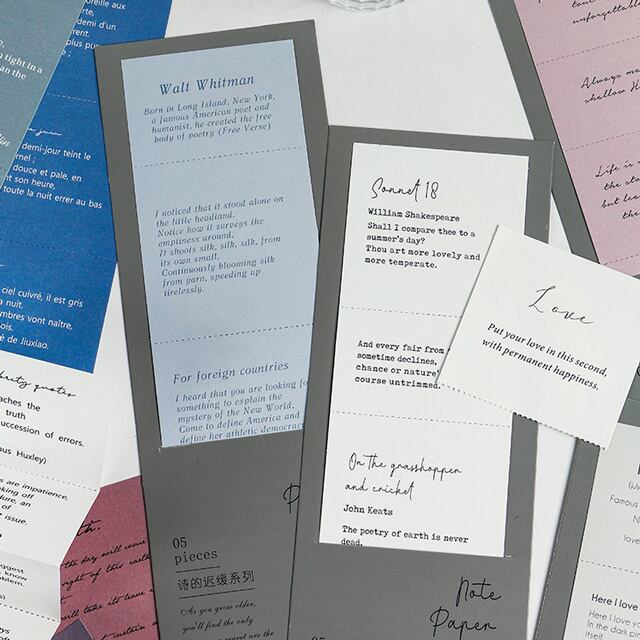 tight in a
an the
Walt Whitman
Born in Long Island, New York,
a famous American poet and
humanist, he created the free
body of poetry (Free Verse)
I noticed that it stood alone on
the little headland.
Notice how it surveys the
empiness around.
It shoots silk, silk, silk, from
its own small.
Continuously blooming silk
from yarn, speeding up
tirelessly.
For foreign countries
I heard that you are looking fo
something to explain the
mystery of the New World,
Come to define America and
define her athletic democrac
05
pieces
诗的迟缓系列
As you grow older,
you'll find the only
regret are the
Sonnet 18
William Shakespeare
Shall I compare thee to a
summer's day?
Thou art more lovely and
more temperate.
And every fair from
sometime declines,
chance or nature'
course untrimmed.
On the grasshopper
and cricket
John Keats
The poetry of earth is never
dead.
Note
Paper
Love
Put your love in this second,
with permanent happiness.
unforgettabl
Always ma
shallow H
Life is
the sto
but lea
the
demi-jour teint le
douce et pale, en
t son heure,
toute la nuit errer au bas
ciel cuivré, il est gris
a nuit.
mbres vont naître,
ois.
é de Jiuxiao.
berty quotes
aches the
truth
uccession of errors.
ous Huxley)
s are impatience,
king off
dure, an
of
issue.
suggest
problem.
the day will come
right of this earth
will take its leave
(July
Famous
love
Here I love
Here I love
In the dark
itself.